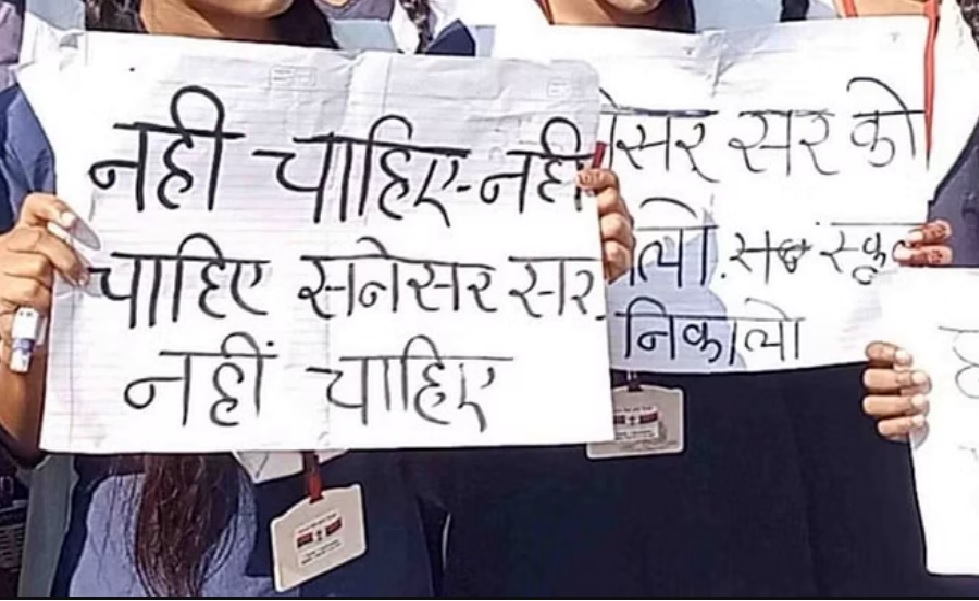 नही चाहिए-नही
चाहिए सनेसर सर
नहीं चाहिए
सर सर को
निकालो